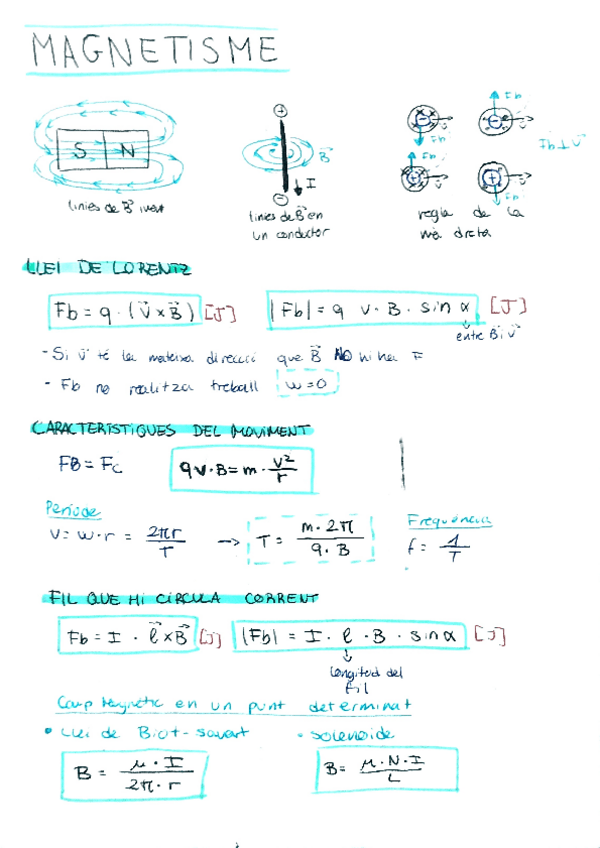 MAGNETISME
S N
línies de B⃗ imant
+
B⃗
I
−
línies de B⃗ en
un conductor
Fb
v⃗
Fb ⊥ v⃗
regla de la
mà dreta
LLEI DE LORENTZ
Fb = q · (v⃗ x B⃗) [J]
|Fb| = q v · B · sin α [J]
entre B i v⃗
- Si v⃗ té la mateixa direcció que B⃗ NO hi ha F
- Fb no realitza treball w=0
CARACTERÍSTIQUES DEL MOVIMENT
FB = Fc
qv·B = m · v²/r
Període
v = w·r = 2πr/T → T = m·2π/q·B
Freqüència
f = 1/T
FIL QUE HI CÍRCULA CORRENT
Fb = I · l⃗ x B⃗ [J]
|Fb| = I · l · B · sin α [J]
longitud del
fil
Camp Magnètic en un punt determinat
• Llei de Biot-savart
• solenoide
B = μ · I / 2π · r
B = μ · N · I / L